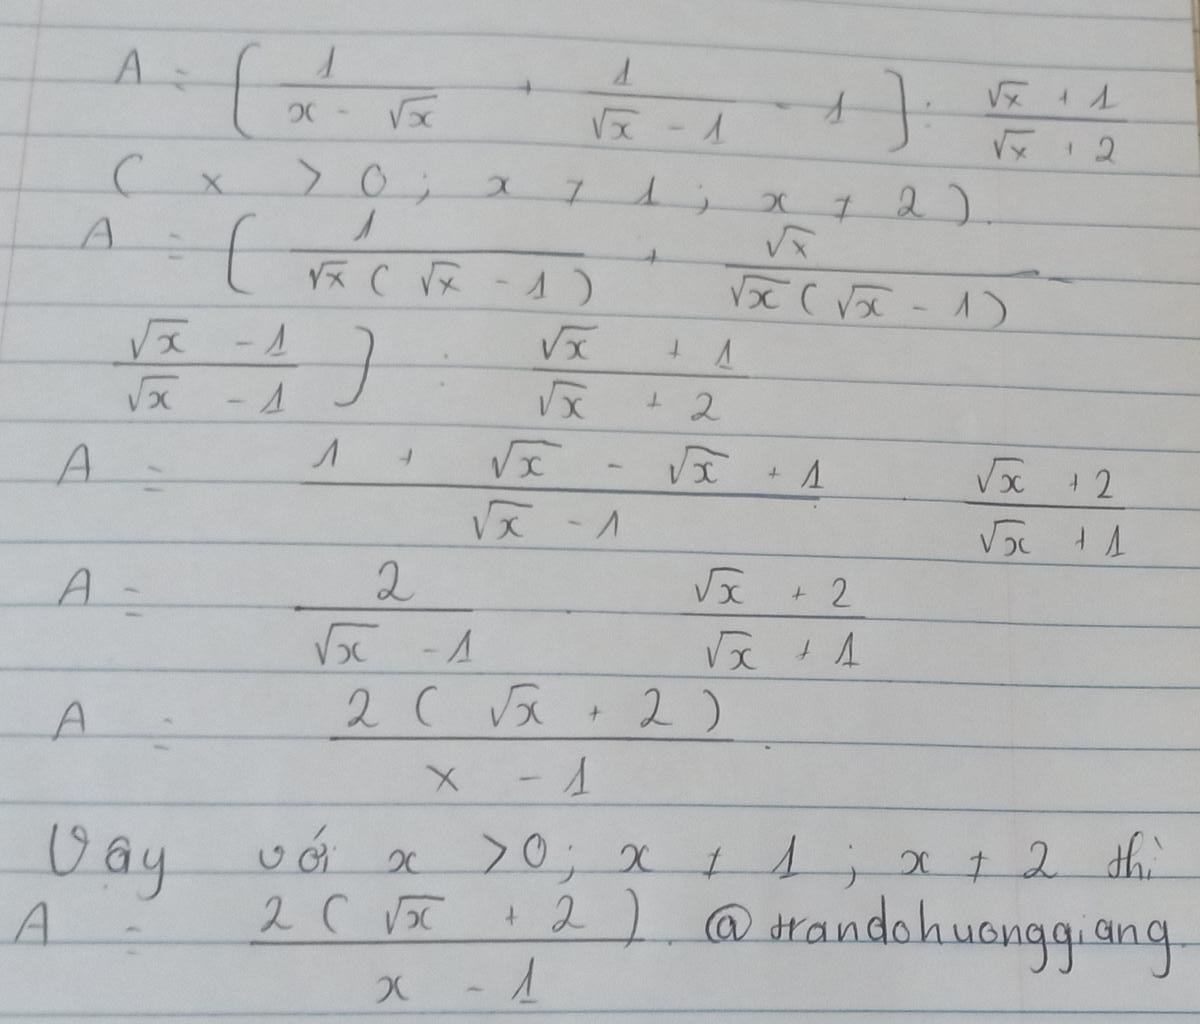 A = [ 1/(x - √x) + 1/(√x - 1) - 1 ] : (√x + 1)/(√x + 2)
( x > 0 ; x ≠ 1 ; x ≠ 2 ).
A = [ 1/(√x ( √x - 1 )) + √x/(√x ( √x - 1 )) -
(√x - 1)/(√x - 1) ] : (√x + 1)/(√x + 2)
A = (1 + √x - √x + 1)/(√x - 1) . (√x + 2)/(√x + 1)
A = 2/(√x - 1) . (√x + 2)/(√x + 1)
A = 2 ( √x + 2 )/(x - 1) .
Vậy với x > 0 ; x ≠ 1 ; x ≠ 2 thì
A = 2 ( √x + 2 )/(x - 1) . @trandohuonggiang